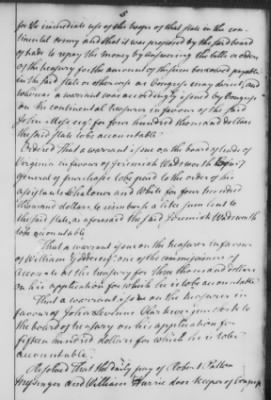 5
for the immediate use of the troops of that state in the con-
tinental army and that it was proposed by the said board
of trade to repay the money by answering the bills or orders
of the treasury for the amount of the sum borrowed payable
in the said state or otherwise as Congress may direct, and
whereas a warrant was accordingly issued by Congress
on the continental treasurer in favour of the said
John for four hundred thousand dollars
the said state to be accountable
Ordered That a warrant issue on the board of trade of
Virginia in favour of Jeremiah Wadsworth
general of purchases to be paid to the order of his
assistants and White for four hundred
thousand dollars, to reimburse a like sum lent to
the said state, as aforesaid the said Jeremiah Wadsworth
to be accountable
That a warrant issue on the treasurer in favour
of William one of the commissioners of
accounts at the treasury for three thousand dollars
on his application for which he is to be accountable
That a warrant issue on the treasurer in
favour of John junr clerk to
the board of treasury on his application for
fifteen hundred dollars for which he is to be
accountable.
Resolved That the daily pay of Robert Patton
Messenger and William Hurrie door keeper of Congress